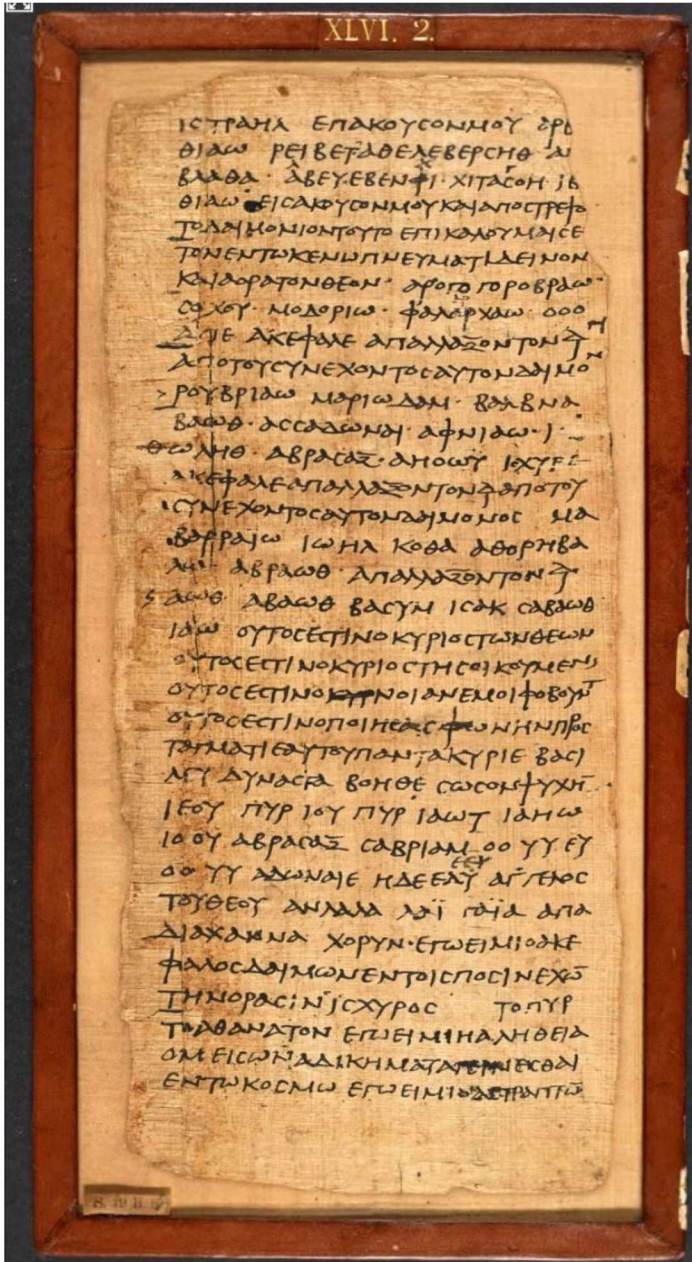 XLVI. 2.
ΙСΤΡΑΗΛ ΕΠΑΚΟΥСΟΝΜΟΥ ΑΡΒ
ΘΙΑω ΡΕΙΒΕΤ ΑΘΕΛΕΒΕΡСΗΘ Α
ΒΛΑΘΑ · ΑΒΕΥ · ΕΒΕΝΦΙ · ΧΙΤΑСΟΗ · ΙΒ
ΘΙΑω ΕΙСΑΚΟΥСΟΝΜΟΥΚΑΙΑΠΟСΤΡΕΨΟ
ΤΟΔΑΙΜΟΝΙΟΝΤΟΥΤΟ ΕΠΙΚΑΛΟΥΜΑΙСΕ
ΤΟΝΕΝΤωΚΕΝωΠΝΕΥΜΑΤΙΔΕΙΝΟΝ
ΚΑΙΑΟΡΑΤΟΝΘΕΟΝ · ΑΡΟΓΟΓΟΡΟΒΡΑω ·
СΟΧΟΥ · ΜΟΔΟΡΙω · ΦΑΛΑΡΧΑω · ΟΟΟ
ΑΓΙΕ ΑΚΕΦΑΛΕ ΑΠΑΛΛΑΞΟΝΤΟΝ
ΑΠΟΤΟΥСΥΝΕΧΟΝΤΟСΑΥΤΟΝΔΑΙΜΟΝ
ΡΟΥΒΡΙΑω ΜΑΡΙωΔΑΜ · ΒΑΛΒΝΑ
ΒΑωΘ · ΑССΑΔωΝΑΙ · ΑΦΝΙΑω · Ι ·
ΘωΛΗΘ · ΑΒΡΑСΑΞ · ΑΗΟωΥ ΙСΧΥΡΕ
ΑΚΕΦΑΛΕΑΠΑΛΛΑΞΟΝΤΟΝ ΑΠΟΤΟΥ
СΥΝΕΧΟΝΤΟСΑΥΤΟΝΔΑΙΜΟΝΟС ΜΑ
ΒΑΡΡΑΙω ΙωΗΛ ΚΟΘΑ ΑΘΟΡΗΒΑ
ΑΒΡΑωΘ · ΑΠΑΛΛΑΞΟΝΤΟΝ
ΑωΘ · ΑΒΑωΘ ΒΑСΥΜ ΙСΑΚ СΑΒΑωΘ
ΙΑω ΟΥΤΟСΕСΤΙΝΟΚΥΡΙΟСΤωΝΘΕωΝ
ΟΥΤΟСΕСΤΙΝΟΚΥΡΙΟСΤΗСΟΙΚΟΥΜΕΝ
ΟΥΤΟСΕСΤΙΝΟΝΟΙΑΝΕΜΟΙΦΟΒΟΥΝΤ
ΟΥΤΟСΕСΤΙΝΟΠΟΙΗСΑСΦωΝΗΝΠΡΟС
ΤΑΓΜΑΤΙΕΑΥΤΟΥΠΑΝΤΑΚΥΡΙΕ ΒΑСΙ
ΛΕΥ ΔΥΝΑСΤΑ ΒΟΗΘΕ СωСΟΝΨΥΧΗ
ΙΕΟΥ ΠΥΡ ΙΟΥ ΠΥΡ ΙΑωΤ ΙΑΗω
ΙΟΟΥ ΑΒΡΑСΑΞ СΑΒΡΙΑΜ ΟΟ ΥΥ ΕΥ
ΟΟ ΥΥ ΑΔωΝΑΙΕ ΗΔΕ ΕΔΥ ΑΓΓΕΛΟС
ΤΟΥΘΕΟΥ ΑΝΛΑΛΑ ΛΑΪ ΓΑΪΑ ΑΠΑ
ΔΙΑΧΑΝΝΑ ΧΟΡΥΝ · ΕΓωΕΙΜΙΟΑΚΕ
ΦΑΛΟСΔΑΙΜωΝΕΝΤΟΙСΠΟСΙΝΕΧω
ΤΗΝΟΡΑСΙΝ ΙСΧΥΡΟС ΤΟΠΥΡ
ΤΟΑΘΑΝΑΤΟΝ ΕΓωΕΙΜΙΗΑΛΗΘΕΙΑ
ΟΜΕΙСωΝΑΔΙΚΗΜΑΤΑΓΕΙΝΕСΘΑΙ
ΕΝΤωΚΟСΜω ΕΓωΕΙΜΙΟΑСΤΡΑΠΤω